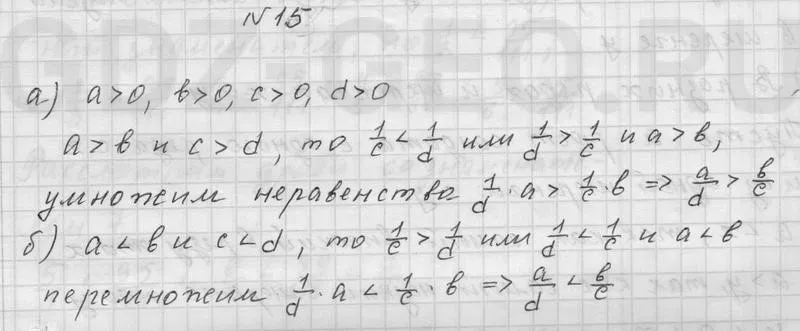 №15
а) a>0, b>0, c>0, d>0
a>b и c>d, то 1/c < 1/d или 1/d > 1/c и a>b,
умножим неравенства 1/d · a > 1/c · b => a/d > b/c
б) a<b и c<d, то 1/c > 1/d или 1/d < 1/c и a<b
перемножим 1/d · a < 1/c · b => a/d < b/c